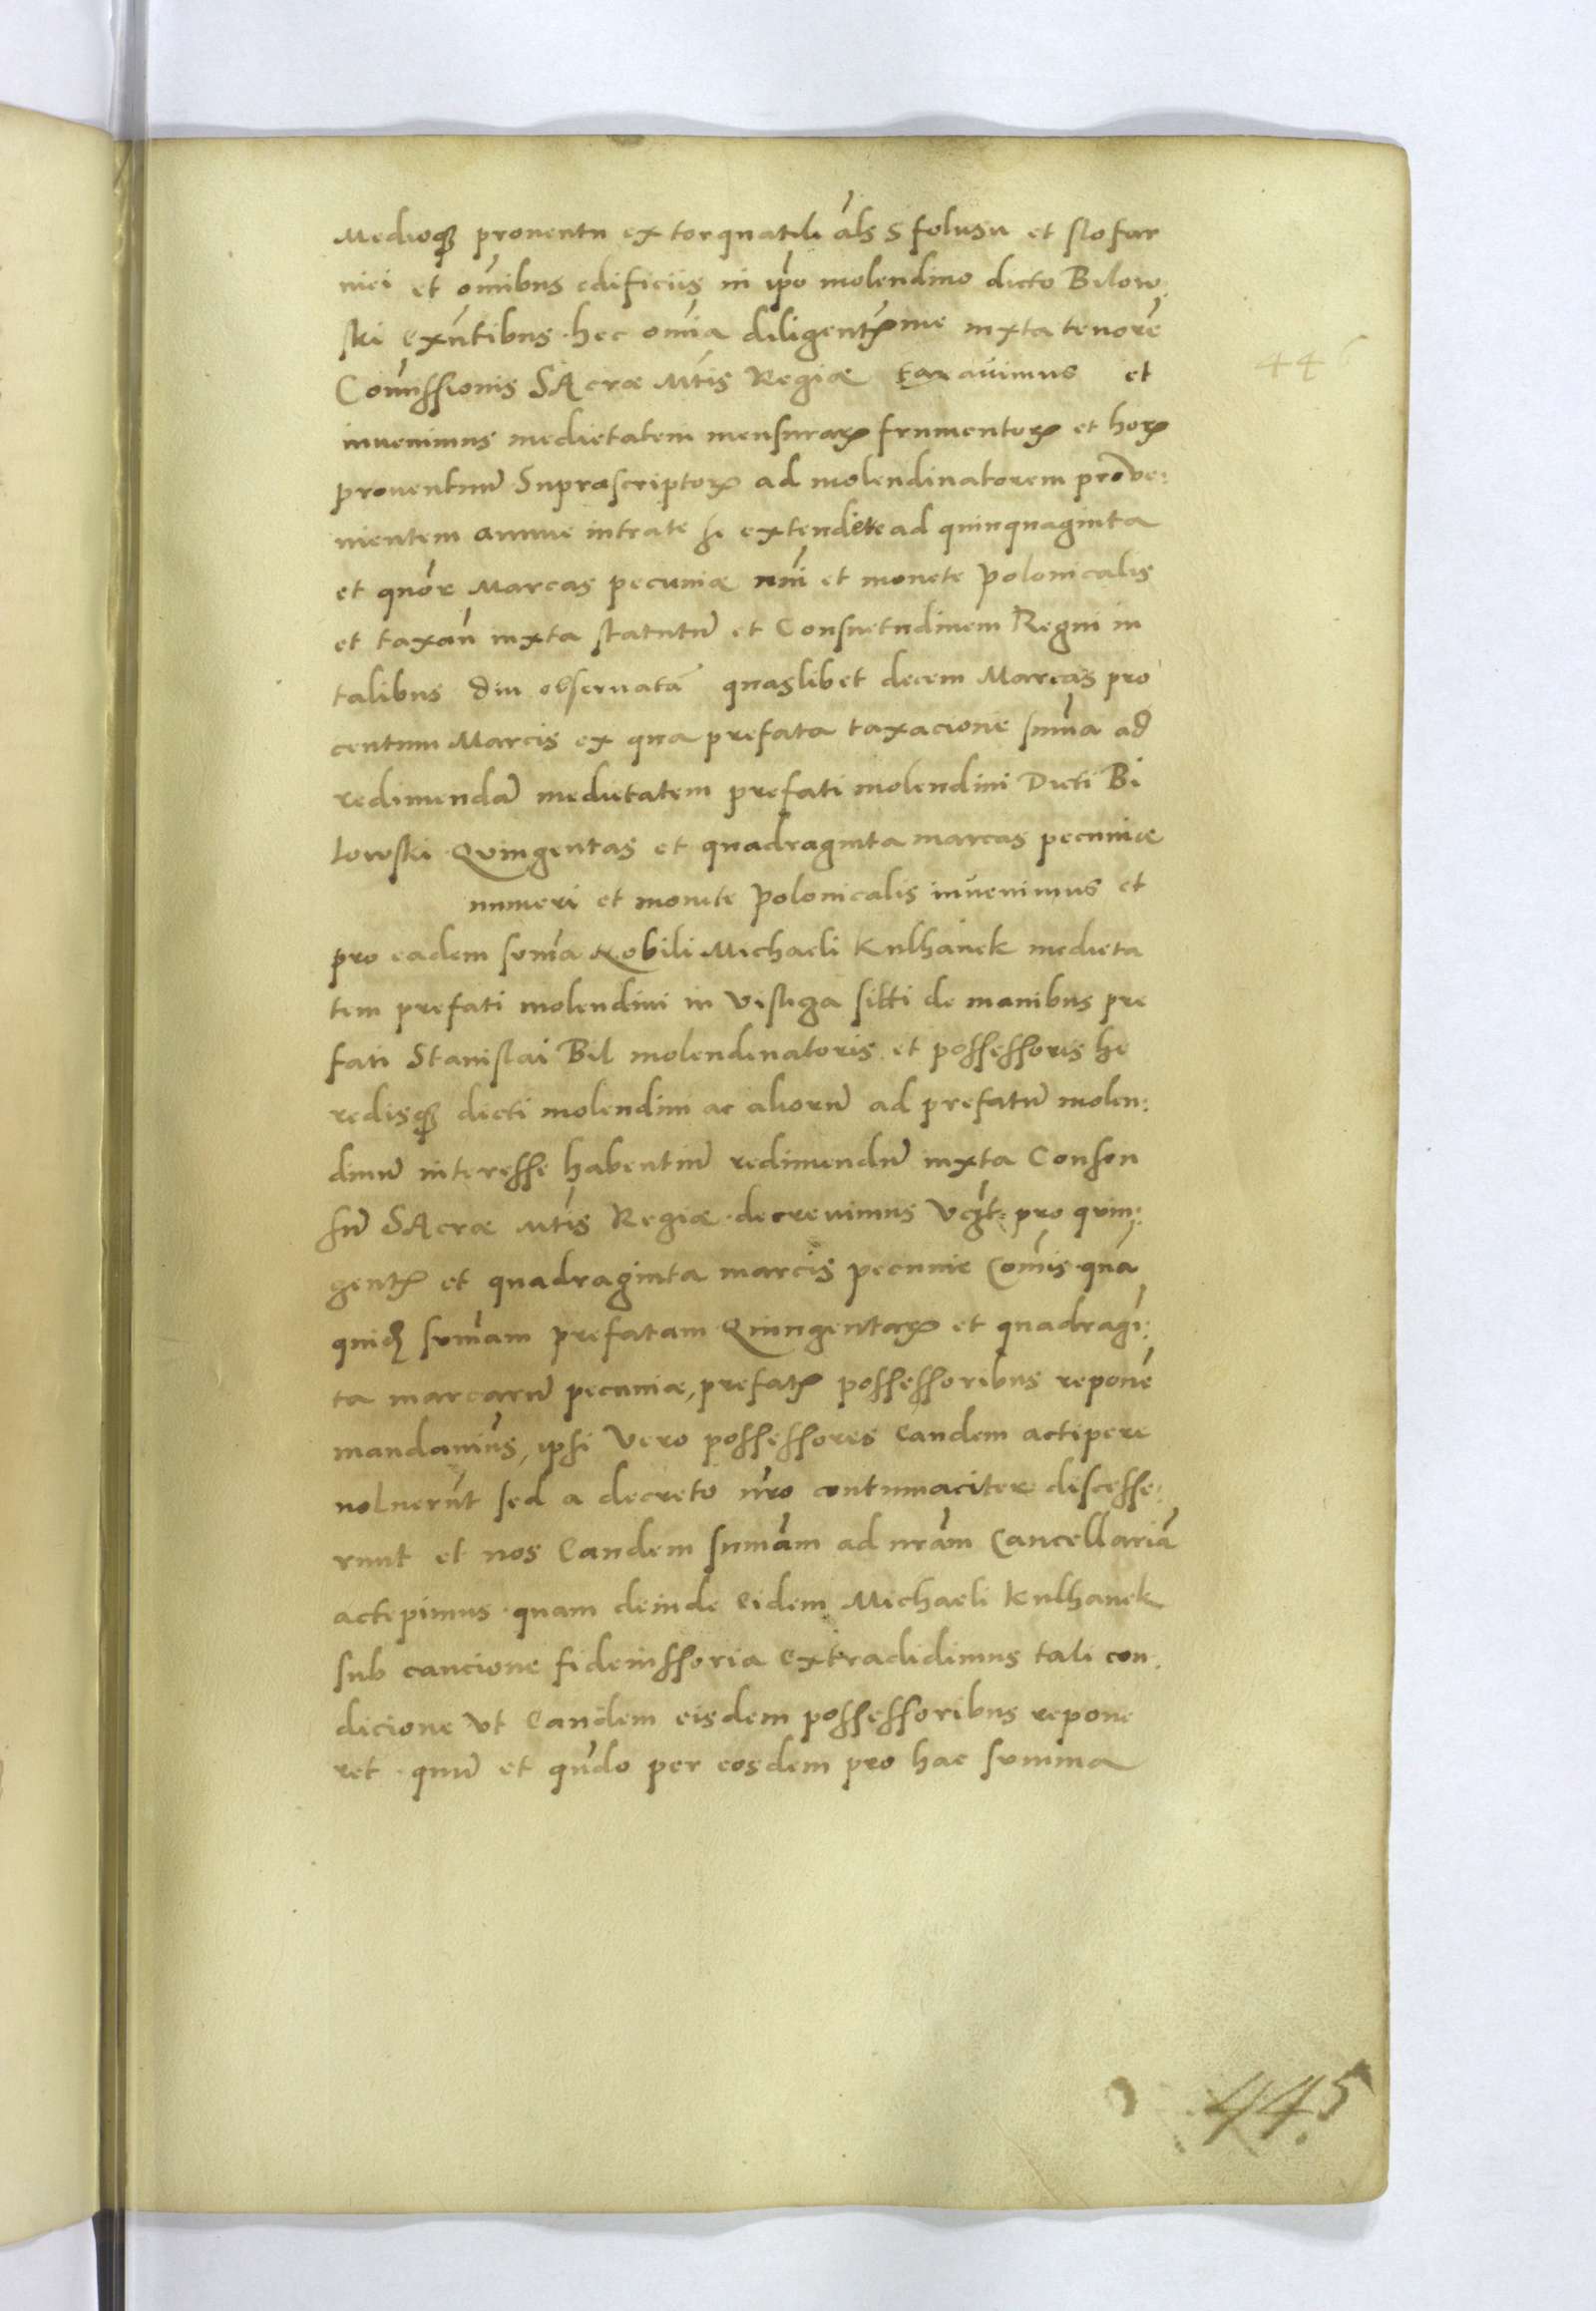 Medioq₃ prouentu ex torquatili al̄s s folusu et slofar
niei et om̄ibus edificiis in ip̄o molendino dicto Bilow:
ski Exn̄tibus. hec om̄ia diligentꝫme iuxta tenorē
Com̄issionis SAcræ Mt̄is Regiæ taxauimus et
446
inuenimus medietatem mensuraꝝ frumentoꝝ et hoꝝ
prouentuū Suprascriptoꝝ ad molendinatorem prove:
nientem annue intrate se extendere ad quinquaginta
et quōr Marcas pecuniæ nr̄i et monete polonicalis
et taxan̄ iuxta statutū et Consuetudinem Regni in
talibus diu obseruatā quaslibet decem Marcas pro
centum Marcis ex qua prefata taxacione sum̄a ad
redimendā medietatem prefati molendini Dicti Bi
lowski Quingentas et quadraginta marcas pecuniæ
numeri et monete polonicalis invenimus et
pro eadem som̄a Nobili Michaeli Kulhanek medieta
tem prefati molendini in Visluga siti de manibus pre
fati Stanislai Bil molendinatoris et possessoris he
redisq₃ dicti molendini ac aliorū ad prefatū molen:
dinū interesse habentiū redimendū iuxta Consen
sū SAcræ Mt̄is Regiæ. decreuimus Vȝt: pro quin:
gentꝫ et quadraginta marcis pecunie Com̄is. quā
quidꝫ som̄am prefatam Quingentaꝝ et quadragī:
ta marcarū pecuniæ, prefatꝫ possessoribus reponē
mandauim̄s, ipsi Vero possessores Eandem accipere
noluerūt sed a decreto nr̄o contumaciter discesse:
runt et nos Eandem sum̄am ad nr̄am Cancellariā
accepimus. quam deinde Eidem Michaeli Kulhanek
sub caucione fideiussoria Extradidimus tali con:
dicione Vt Eandem eisdem possessoribus repone
ret. quū et qūdo per eosdem pro hac summa
445